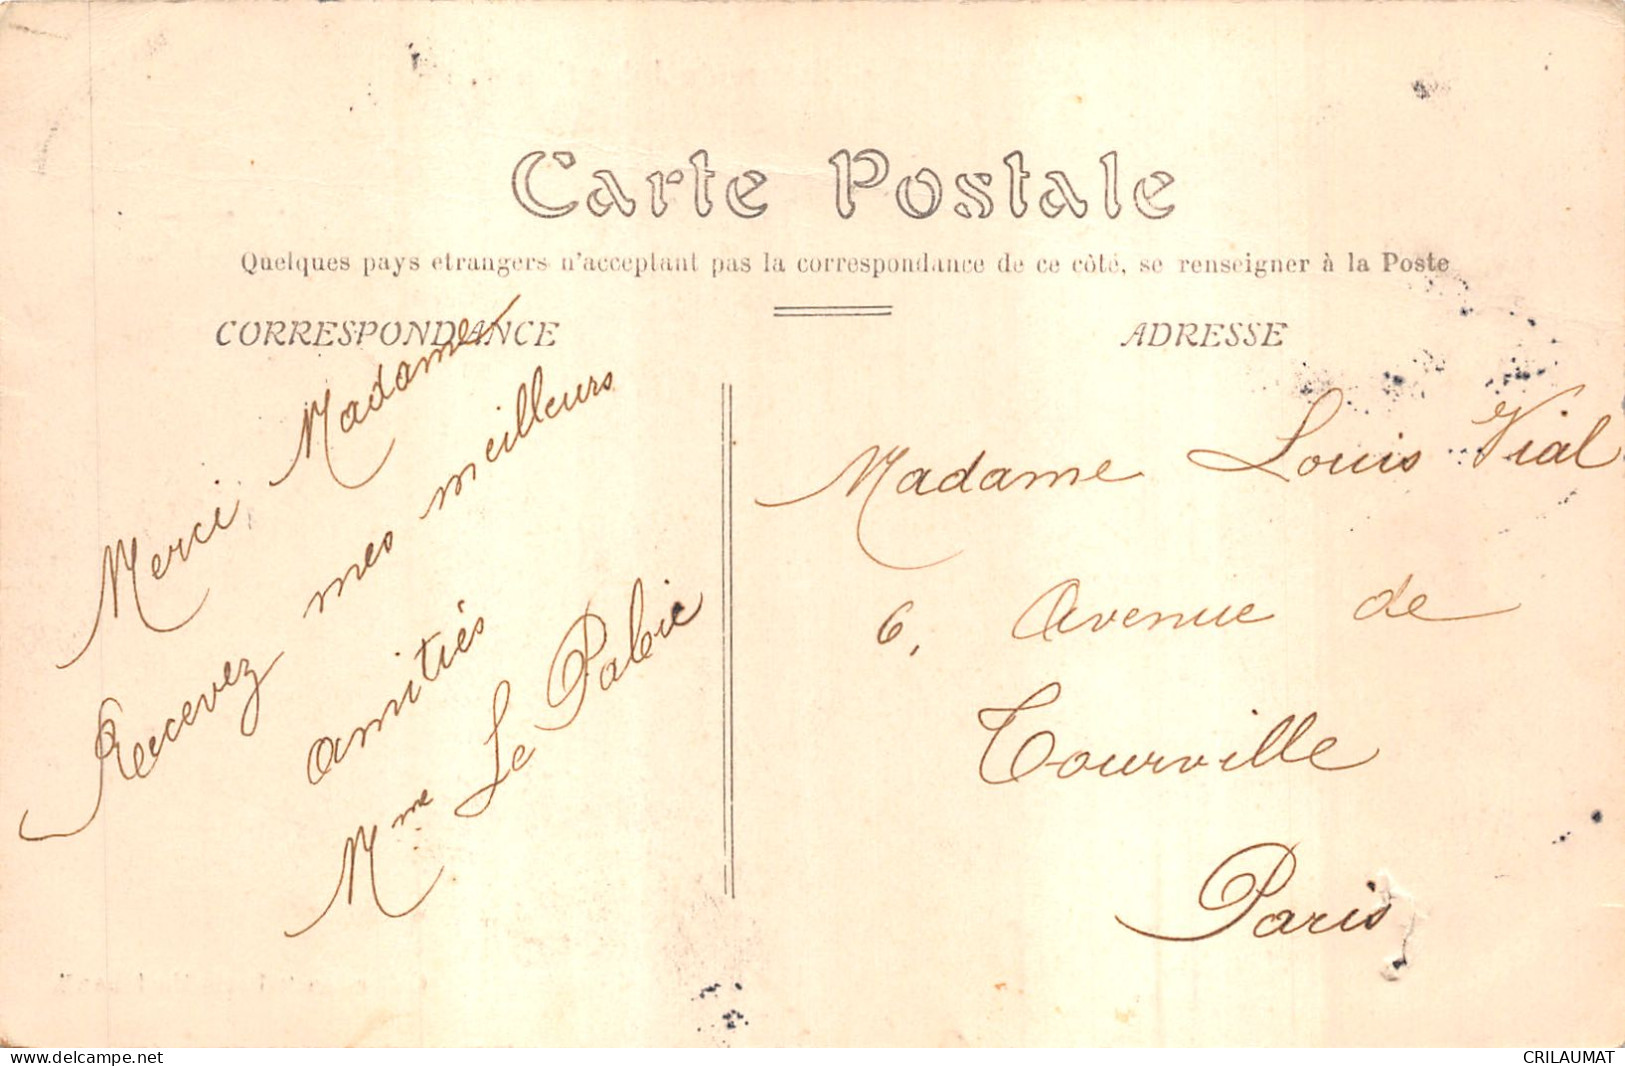 Carte Postale
Quelques pays etrangers n'acceptant pas la correspondance de ce côté, se renseigner à la Poste
CORRESPONDANCE
ADRESSE
Merci Madame
Recevez mes meilleurs
amitiés
Mme Le
Madame Louis Vial
6, Avenue de
Tourville
Paris
www.delcampe.net
CRILAUMAT